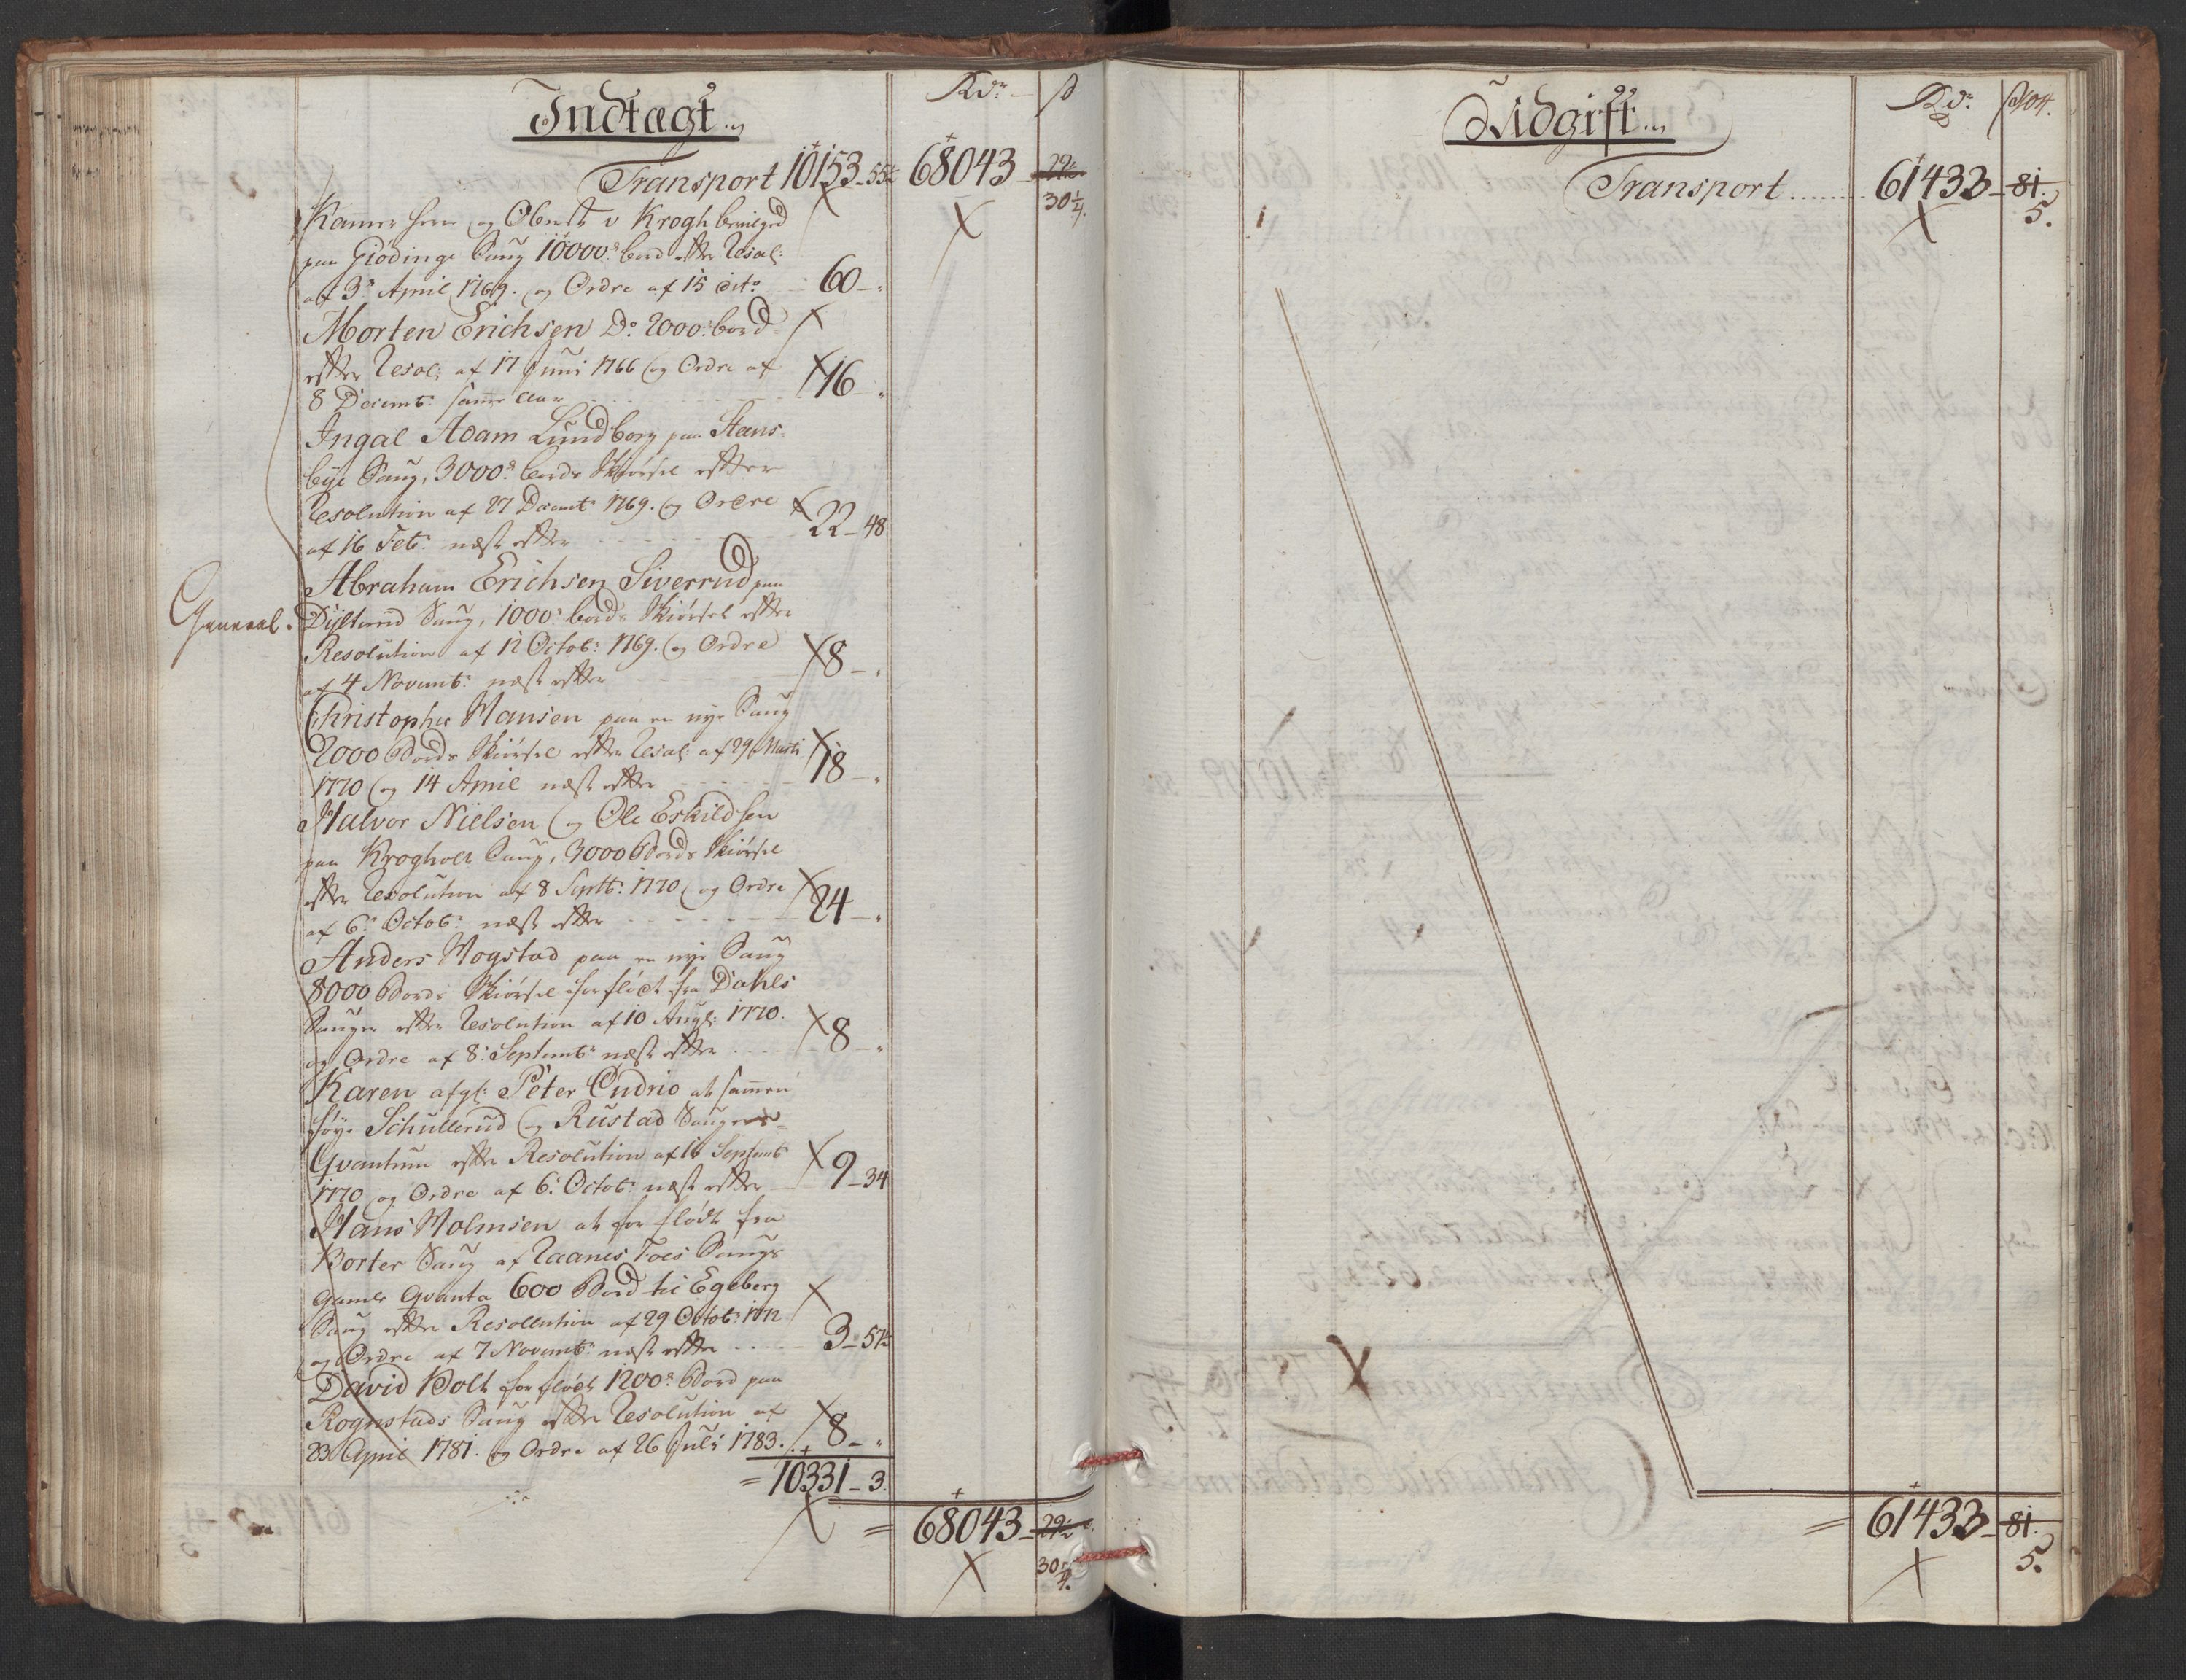 Indtægt
Rdr ß
Transport 10153 - 55½ 68043 - 29½
30¼.
Kammerherre og Oberst v Krogh bevilged
paa Giødinge Saug 10000 bord efter Resol:
af 3 April 1769. og Ordre af 15 dito 60 - "
Morten Erichsen Do 2000 bord
efter Resol: af 17 Juni 1766 og Ordre af
8 Decembr: samme Aar 16 - "
Ingal Adam Lundborg paa Stens
bye Saug, 3000 bords Skiørsel efter
Resolution af 27 Decembr 1769. og Ordre
af 16 Febr: næst efter 22 - 48
Abraham Erichsen Siverrud paa
General. Dylterud Saug, 1000 bords Skiørsel efter
Resolution af 12 Octobr: 1769. og Ordre
af 4 Novembr: næst efter 8 - "
Christopher Hansen paa en nye Saug
2000 Bords Skiørsel efter Resol: af 29 Marti
1770 og 14 April næst efter 18 - "
Halvor Nielsen og Ole Eskildsen
paa Krogholt Saug, 3000 Bords Skiørsel
efter Resolution af 8 Septbr: 1770 og Ordre
af 6 Octobr: næst efter 24 - "
Anders Hogstad paa en nye Saug
8000 Bords Skiørsel forfløet fra Dahls
Sauger efter Resolution af 10 Aug: 1770.
og Ordre af 8 Septembr næst efter 8 - "
Karen afgl: Peter Cudrio at sammen
føye Schullerud og Rustad Saugers
Qvantum efter Resolution af 16 Septembr
1770 og Ordre af 6 Octobr: næst efter 9 - 34
Hans Holmsen at forfløtt fra
Borter Saug af Raanes Foes Saugs
gamle Qvanta 600 Bord til Egeberg
Saug efter Resolution af 29 Octobr: 1772
og Ordre af 7 Novembr: næst efter 3 - 57½
David Holt forfløtt 1200 Bord paa
Rognstads Saug efter Resolution af
23 April 1781. og Ordre af 26 Juli 1783. 8 - "
= 10331 - 3.
= 68043 - 29½
30¼.
Udgift
Rdr: ß 104.
Transport 61433 - 81.
5.
= 61433 - 81.
5.